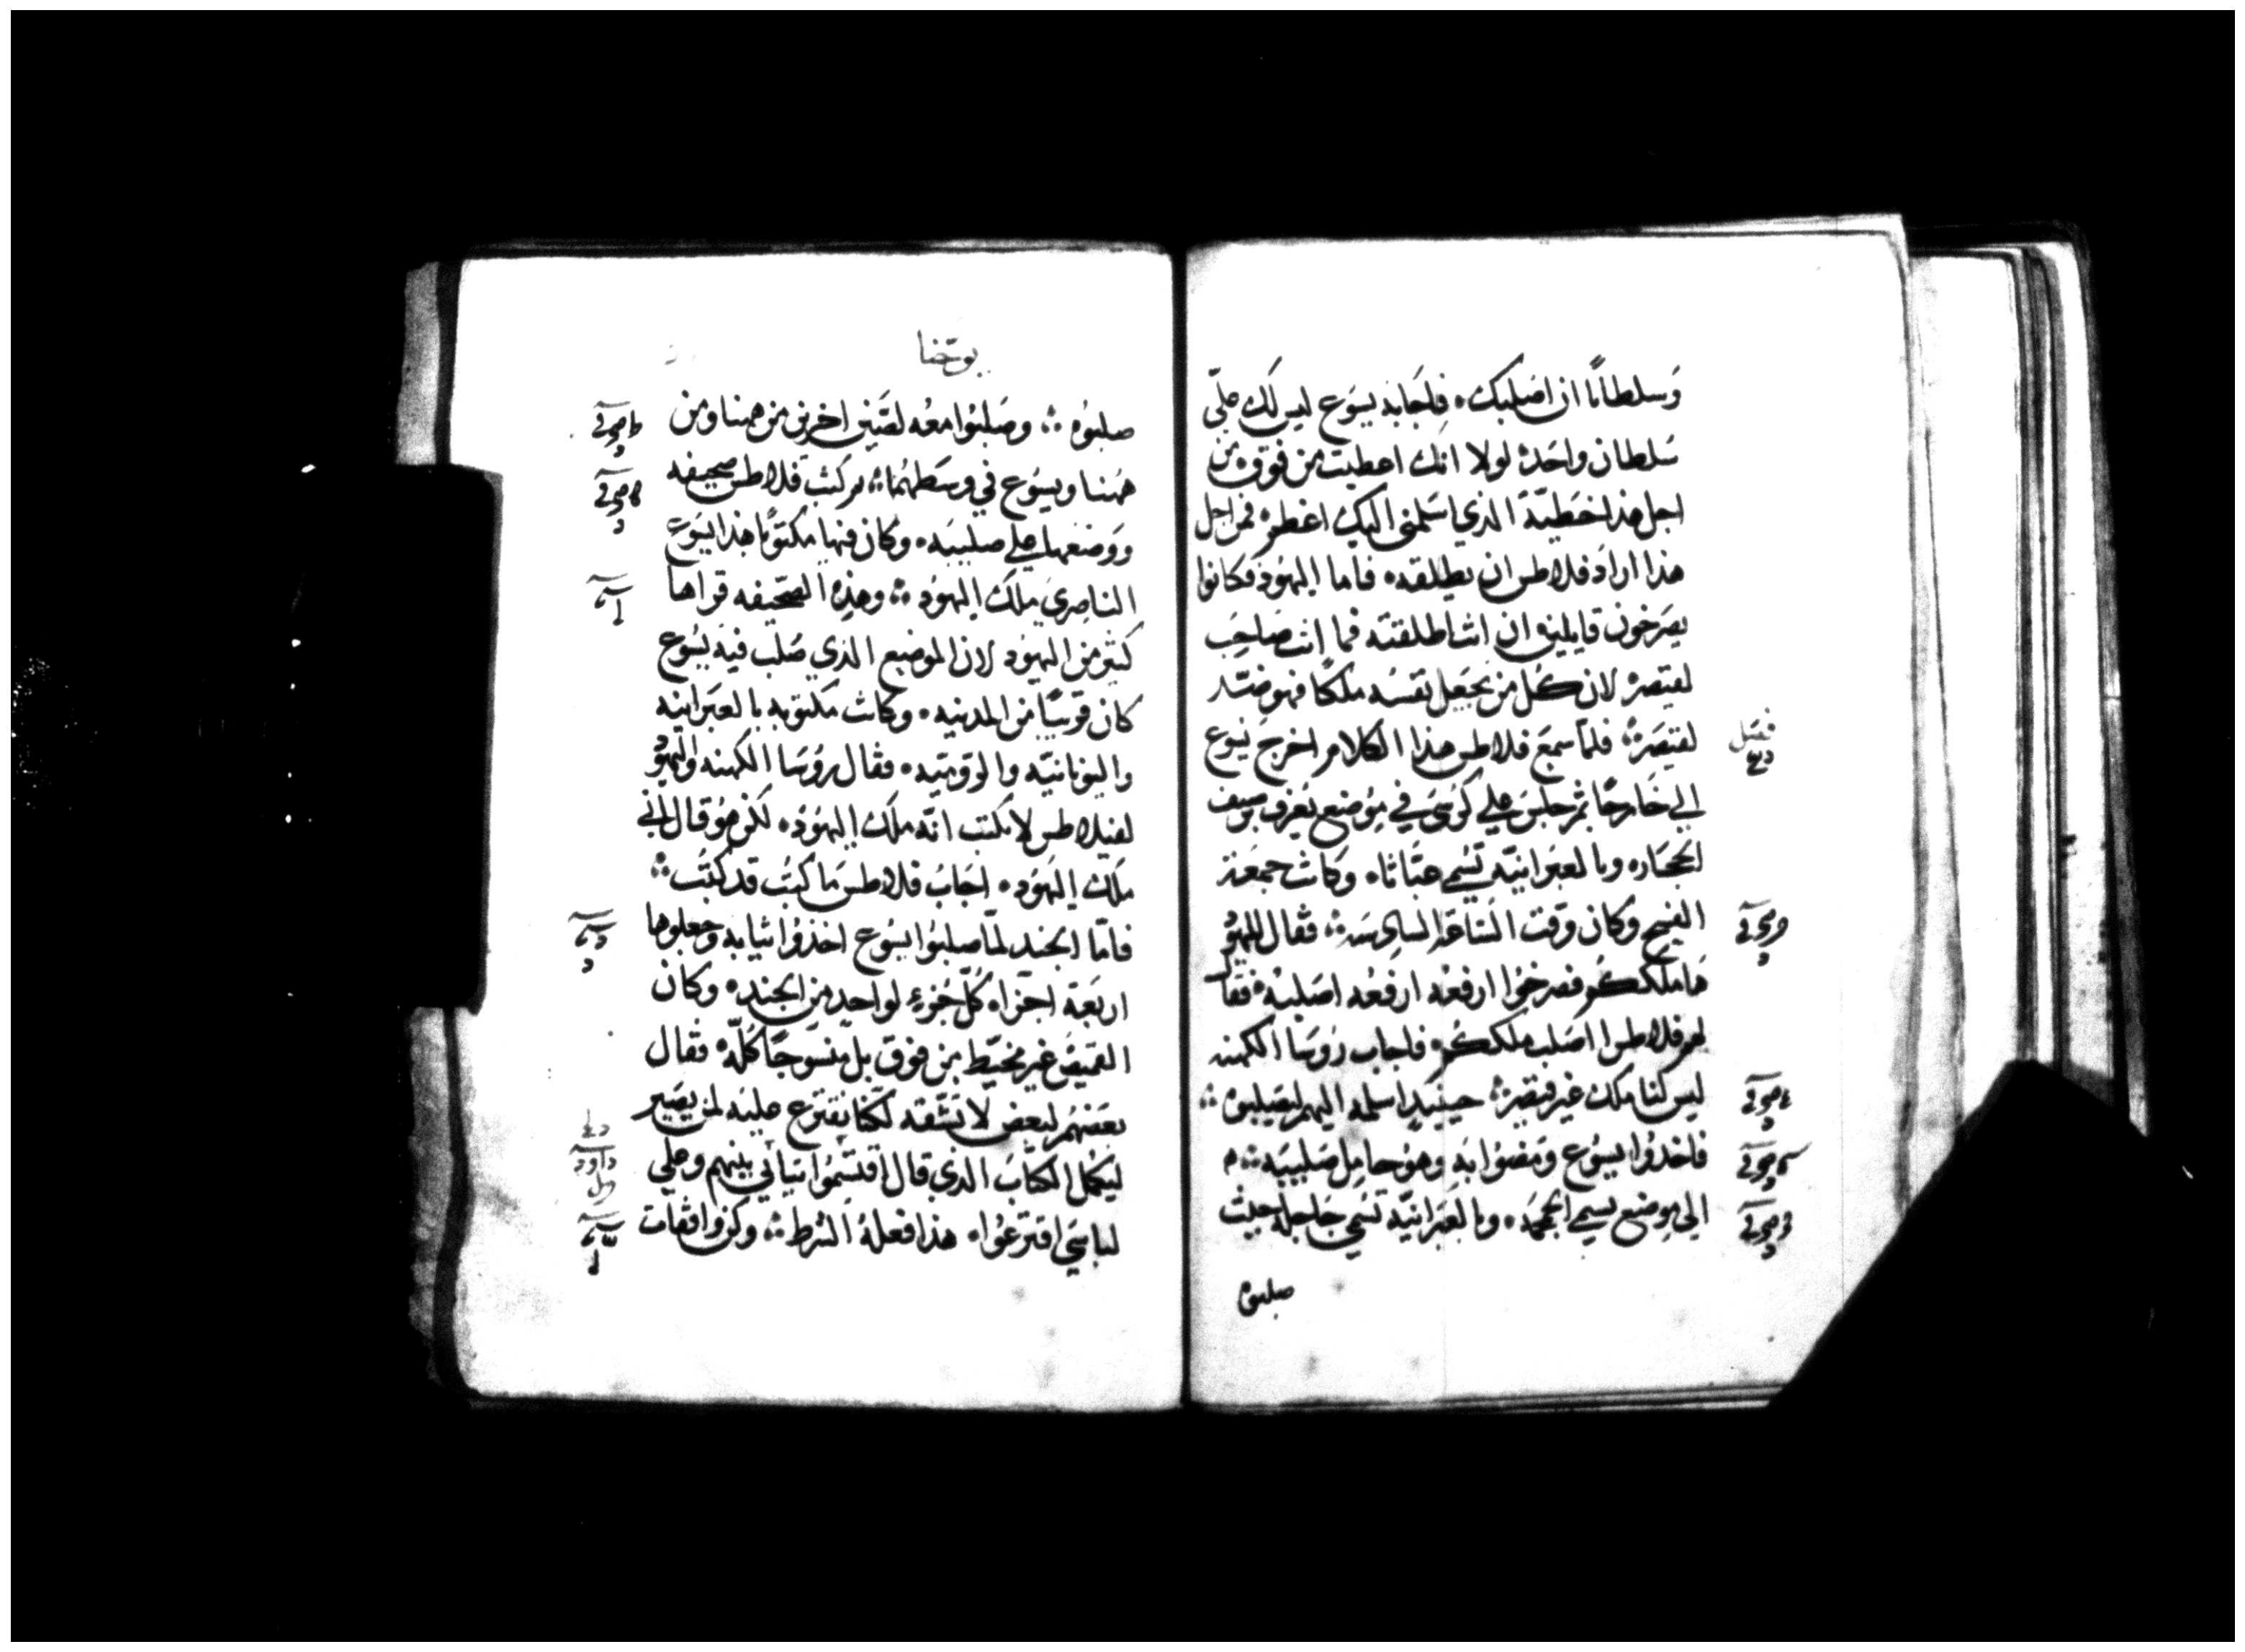 وَسلطانًا ان اصَلبك، فاجَابه يسَوع ليس لك عليّ
سُلطان واحَده لولا انك اعطيت من فوق، من
اجل هذا خطيّة الذي اسَلمني اليك اعظم، فمن اجل
هذا ارادَ فلاطس ان يطلقه، فاما اليهُود فكانوا
يصَرخون قايلين ان انت اطلقته فما انت صَاحِب
لقيصَر، لان كُل من يجعَل نفسُه ملكًا فهو ضدّ
لقيصَر، فلما سمعَ فلاطس هذا الكلام اخرجَ يسَوع
فصَل
الي خَارجًا ثم جلسَ علي كرُسَي في موُضع يعُرف برصيف
الحجَاره وبالعبرانيّه تسُمي غبّاثا، وكانت جمعة
الفصح وكان وقت السَّاعَة السادسَه، فقال لليهُود
هَا ملككُم فصرخوُا ارفعُه ارفعُه اصَلبه، فقال
لهم فلاطس اصَلب ملككُم، فاجاب روُسَا الكهنه
ليس لنا ملك غير قيصر، حينيدٍ اسلمه اليهم ليصَلبوه
فاخدوُا يسوُع ومَضوا به وهوُ حامِل صَليبَه
الي موضع يسمي الجمجمه، وبالعَبرَانيّه تسُمي جَلجلة حيث
صلبوه
يوحَنا
صلبوُه، وصَلبُوا معُه لصَّين اخرين من ههنا ومن
ههُنا ويسوُع في وسَطهُما، ثم كتب فلاطس صحيفه
ووضعَها علي صليبَه، وكان فيها مكتوبًا هذا يسَوع
الناصِري مَلك اليهُود، وهذه الصَّحيفه قراها
كثير من اليهوُد لان الموضع الذي صُلب فيه يسُوع
كان قريبًا من المدينه، وكانت مكتوبه بالعبَرانيه
واليونانيّه والروميّه، فقال روُسَا الكهنه واليهود
لفيلاطس لا تكتب انّه ملك اليهُود، لكن هوُ قال اني
ملك اليهوَد، اجَابَ فلاطسَ ما كتبت قد كتُبت
فامّا الجند لمّا صَلبُوا يسُوع اخذوُا ثيابه وجعلوها
اربَعة اجزاء كُلّ جُزءٍ لواحِد من الجند، وكان
القميصُ غير مخيّط من فوق بل منسوجًا كُلّه، فقال
بعضهُم لبعض لا نشّقه لكنّا نقترع عليه لمن يصَير
ليكمل الكتابُ الذي قال اقتسَمُوا ثيابي بينهم وعلي
داود
لباسَي اقترعُوا، هذا فعلهُ الشرط، وكن واقفات